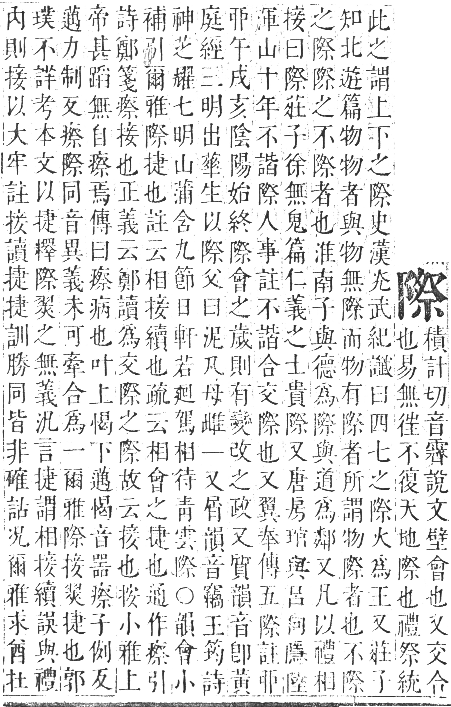 際
積計切音霽說文壁會也又交合
也易無徃不復天地際也禮祭統
此之謂上下之際史漢光武紀讖曰四七之際火爲王又莊子
知北遊篇物物者與物無際而物有際者所謂物際者也不際
之際際之不際者也淮南子與德爲際與道爲鄰又凡以禮相
接曰際莊子徐無鬼篇仁義之士貴際又唐房琯與呂向隱陸
渾山十年不諧際人事註不諧合交際也又翼奉傳五際註丣
丣午戌亥陰陽始終際會之歲則有變改之政又質韻音卽黃
庭經三明出華生以際父曰泥丸母雌一又屑韻音竊王筠詩
神芝燿七明山蒲含九節日軒若廻駕相待靑雲際○韻會小
補引爾雅際捷也註云相接續也疏云相會之捷也通作瘵引
詩鄭箋瘵接也正義云鄭讀爲交際之際故云接也按小雅上
帝甚蹈無自瘵焉傳曰瘵病也叶上愒下邁愒音器瘵子例反
邁力制反瘵際同音異義未可牽合爲一爾雅際接翜捷也郭
璞不詳考本文以捷釋際翜之無義況言捷謂相接續誤與禮
內則接以大牢註接讀捷捷訓勝同皆非確詁况爾雅求酋在